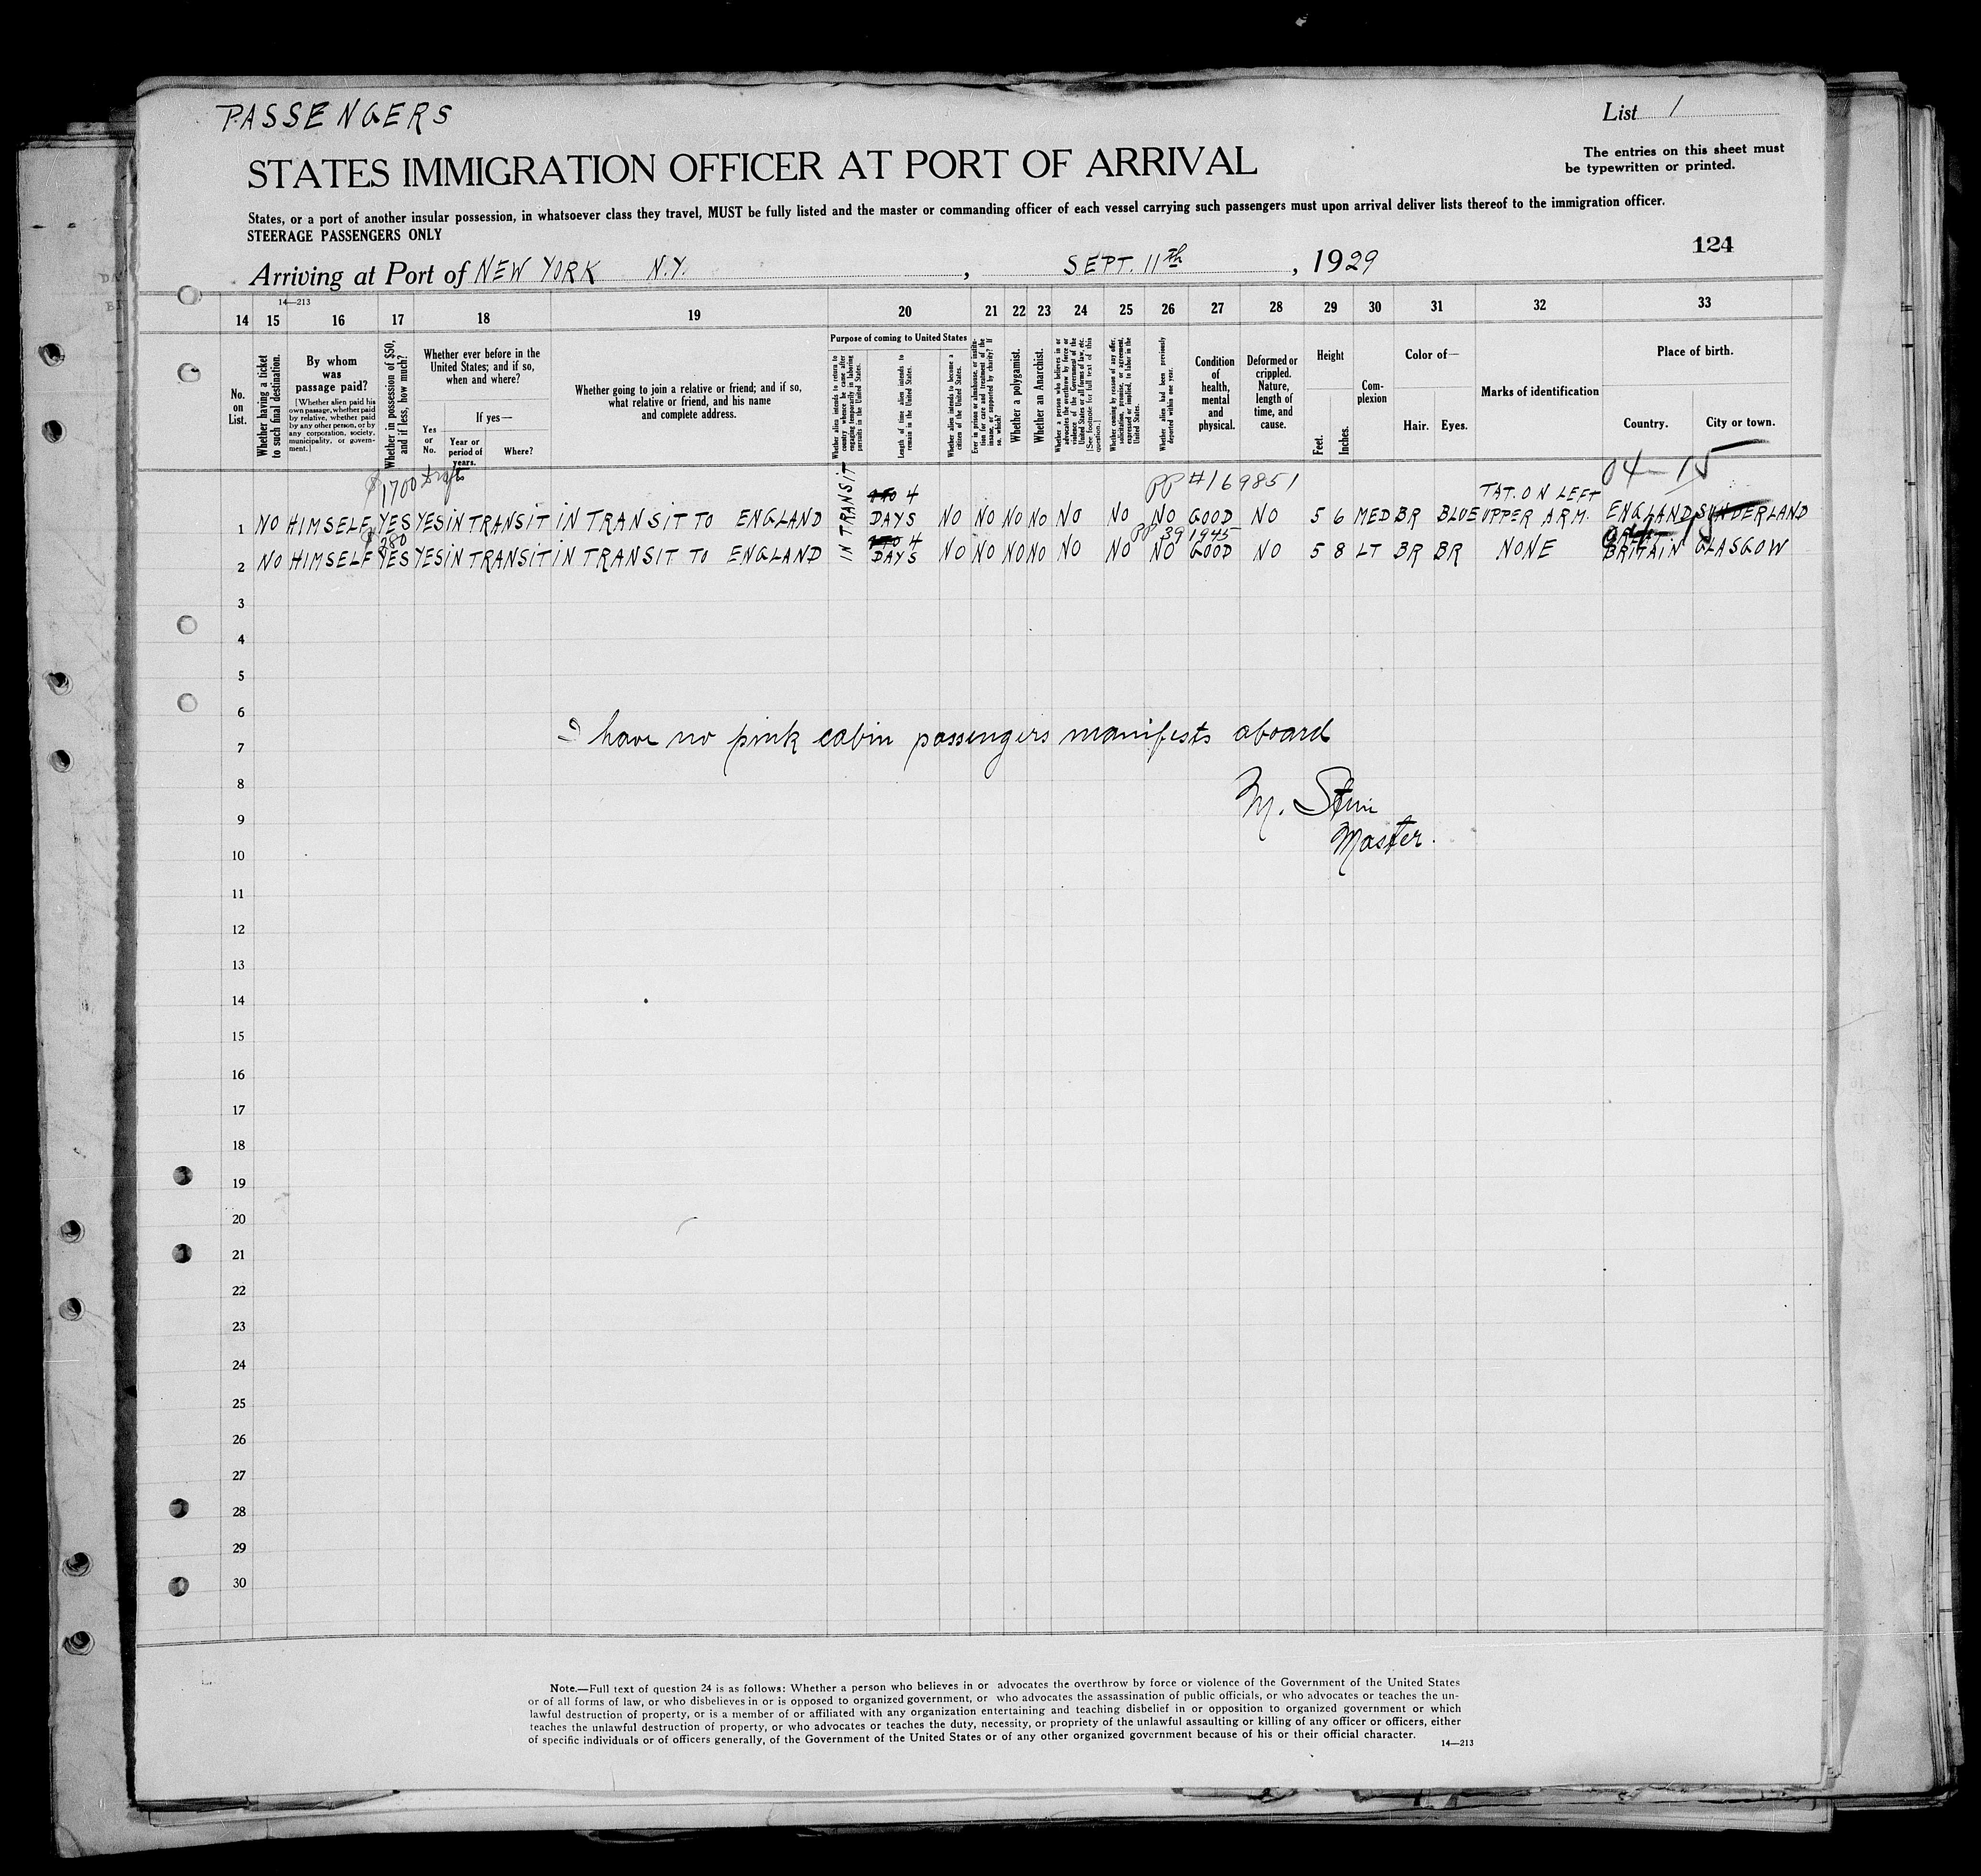 PASSENGERS
List 1
STATES IMMIGRATION OFFICER AT PORT OF ARRIVAL
The entries on this sheet must
be typewritten or printed.
States, or a port of another insular possession, in whatsoever class they travel, MUST be fully listed and the master or commanding officer of each vessel carrying such passengers must upon arrival deliver lists thereof to the immigration officer.
STEERAGE PASSENGERS ONLY
124
Arriving at Port of NEW YORK N.Y. , SEPT. 11th , 1929
14—213
14 15 16 17 18 19 20 21 22 23 24 25 26 27 28 29 30 31 32 33
No. on List.
Whether having a ticket to such final destination.
By whom was passage paid?
[Whether alien paid his own passage, whether paid by relative, whether paid by any other person, or by any corporation, society, municipality, or government.]
Whether in possession of $50, and if less, how much?
Whether ever before in the United States; and if so, when and where?
Yes or No.
If yes—
Year or period of years.
Where?
Whether going to join a relative or friend; and if so, what relative or friend, and his name and complete address.
Purpose of coming to United States
Whether alien intends to return to country whence he came after engaging temporarily in laboring pursuits in the United States.
Length of time alien intends to remain in the United States.
Whether alien intends to become a citizen of the United States.
Ever in prison or almshouse, or institution for care and treatment of the insane, or supported by charity? If so, which?
Whether a polygamist.
Whether an Anarchist.
Whether a person who believes in or advocates the overthrow by force or violence of the Government of the United States or all forms of law, etc. [See footnote for full text of this question.]
Whether coming by reason of any offer, solicitation, promise, or agreement, expressed or implied, to labor in the United States.
Whether alien had been previously deported within one year.
Condition of health, mental and physical.
Deformed or crippled. Nature, length of time, and cause.
Height
Feet. Inches.
Complexion
Color of—
Hair. Eyes.
Marks of identification
Place of birth.
Country. City or town.
$1700 Drafts
IN TRANSIT
4
PP #169851
TAT. ON LEFT
04—15
1 NO HIMSELF YES YES IN TRANSIT IN TRANSIT TO ENGLAND DAYS NO NO NO NO NO NO NO GOOD NO 5 6 MED BR BLUE UPPER ARM. ENGLAND SUNDERLAND
$280
4
PP 391945
GREAT
15
2 NO HIMSELF YES YES IN TRANSIT IN TRANSIT TO ENGLAND DAYS NO NO NO NO NO NO NO GOOD NO 5 8 LT BR BR NONE BRITAIN GLASGOW
3
4
5
6
I have no pink cabin passengers manifests aboard
7
8
M.
9
Master.
10
11
12
13
14
15
16
17
18
19
20
21
22
23
24
25
26
27
28
29
30
Note.—Full text of question 24 is as follows: Whether a person who believes in or advocates the overthrow by force or violence of the Government of the United States
or of all forms of law, or who disbelieves in or is opposed to organized government, or who advocates the assassination of public officials, or who advocates or teaches the un-
lawful destruction of property, or is a member of or affiliated with any organization entertaining and teaching disbelief in or opposition to organized government or which
teaches the unlawful destruction of property, or who advocates or teaches the duty, necessity, or propriety of the unlawful assaulting or killing of any officer or officers, either
of specific individuals or of officers generally, of the Government of the United States or of any other organized government because of his or their official character.
14—213